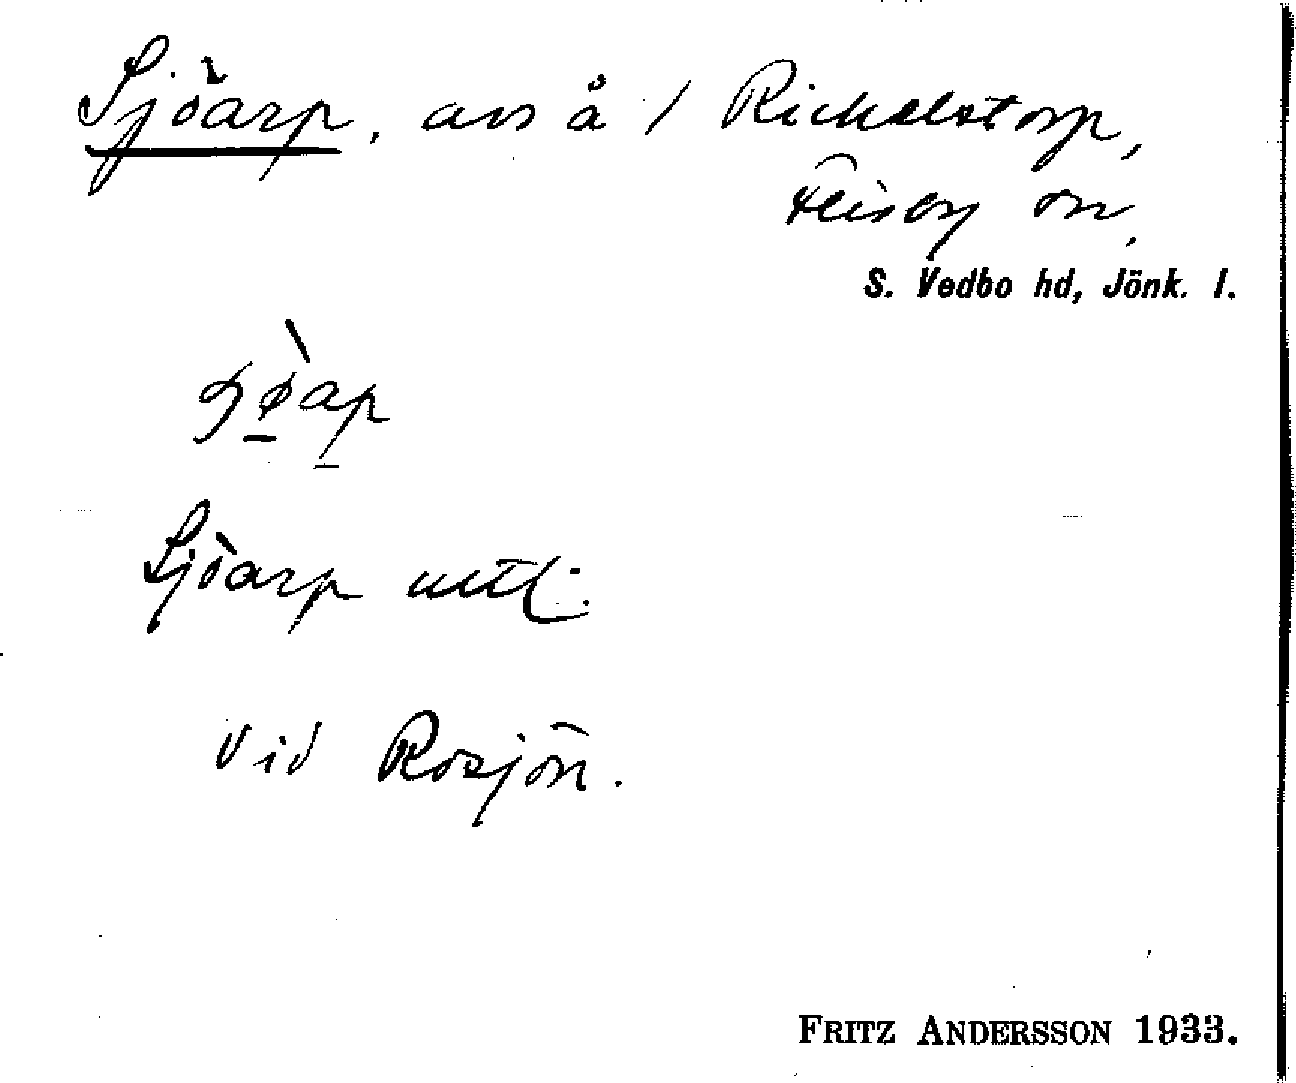 Sjöarp, avs å 1 Rickelstorp,
Flisby sn,
S. Vedbo hd, Jönk. l.
Sjöarp uttl.
Vid Rosjön.
FRITZ ANDERSSON 1933.